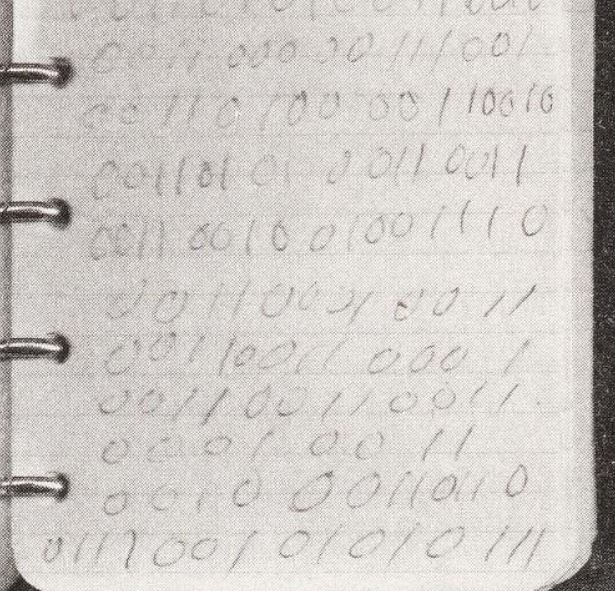 0011 000 00 111001
00110100 00 110010
001101 01 0 011 0011
0011 0010 0100 1110
0011 0001 00 11
0011 0011 000 1
0011 0011 0011
0001 00 11
0010 00110110
0111 001 01010111